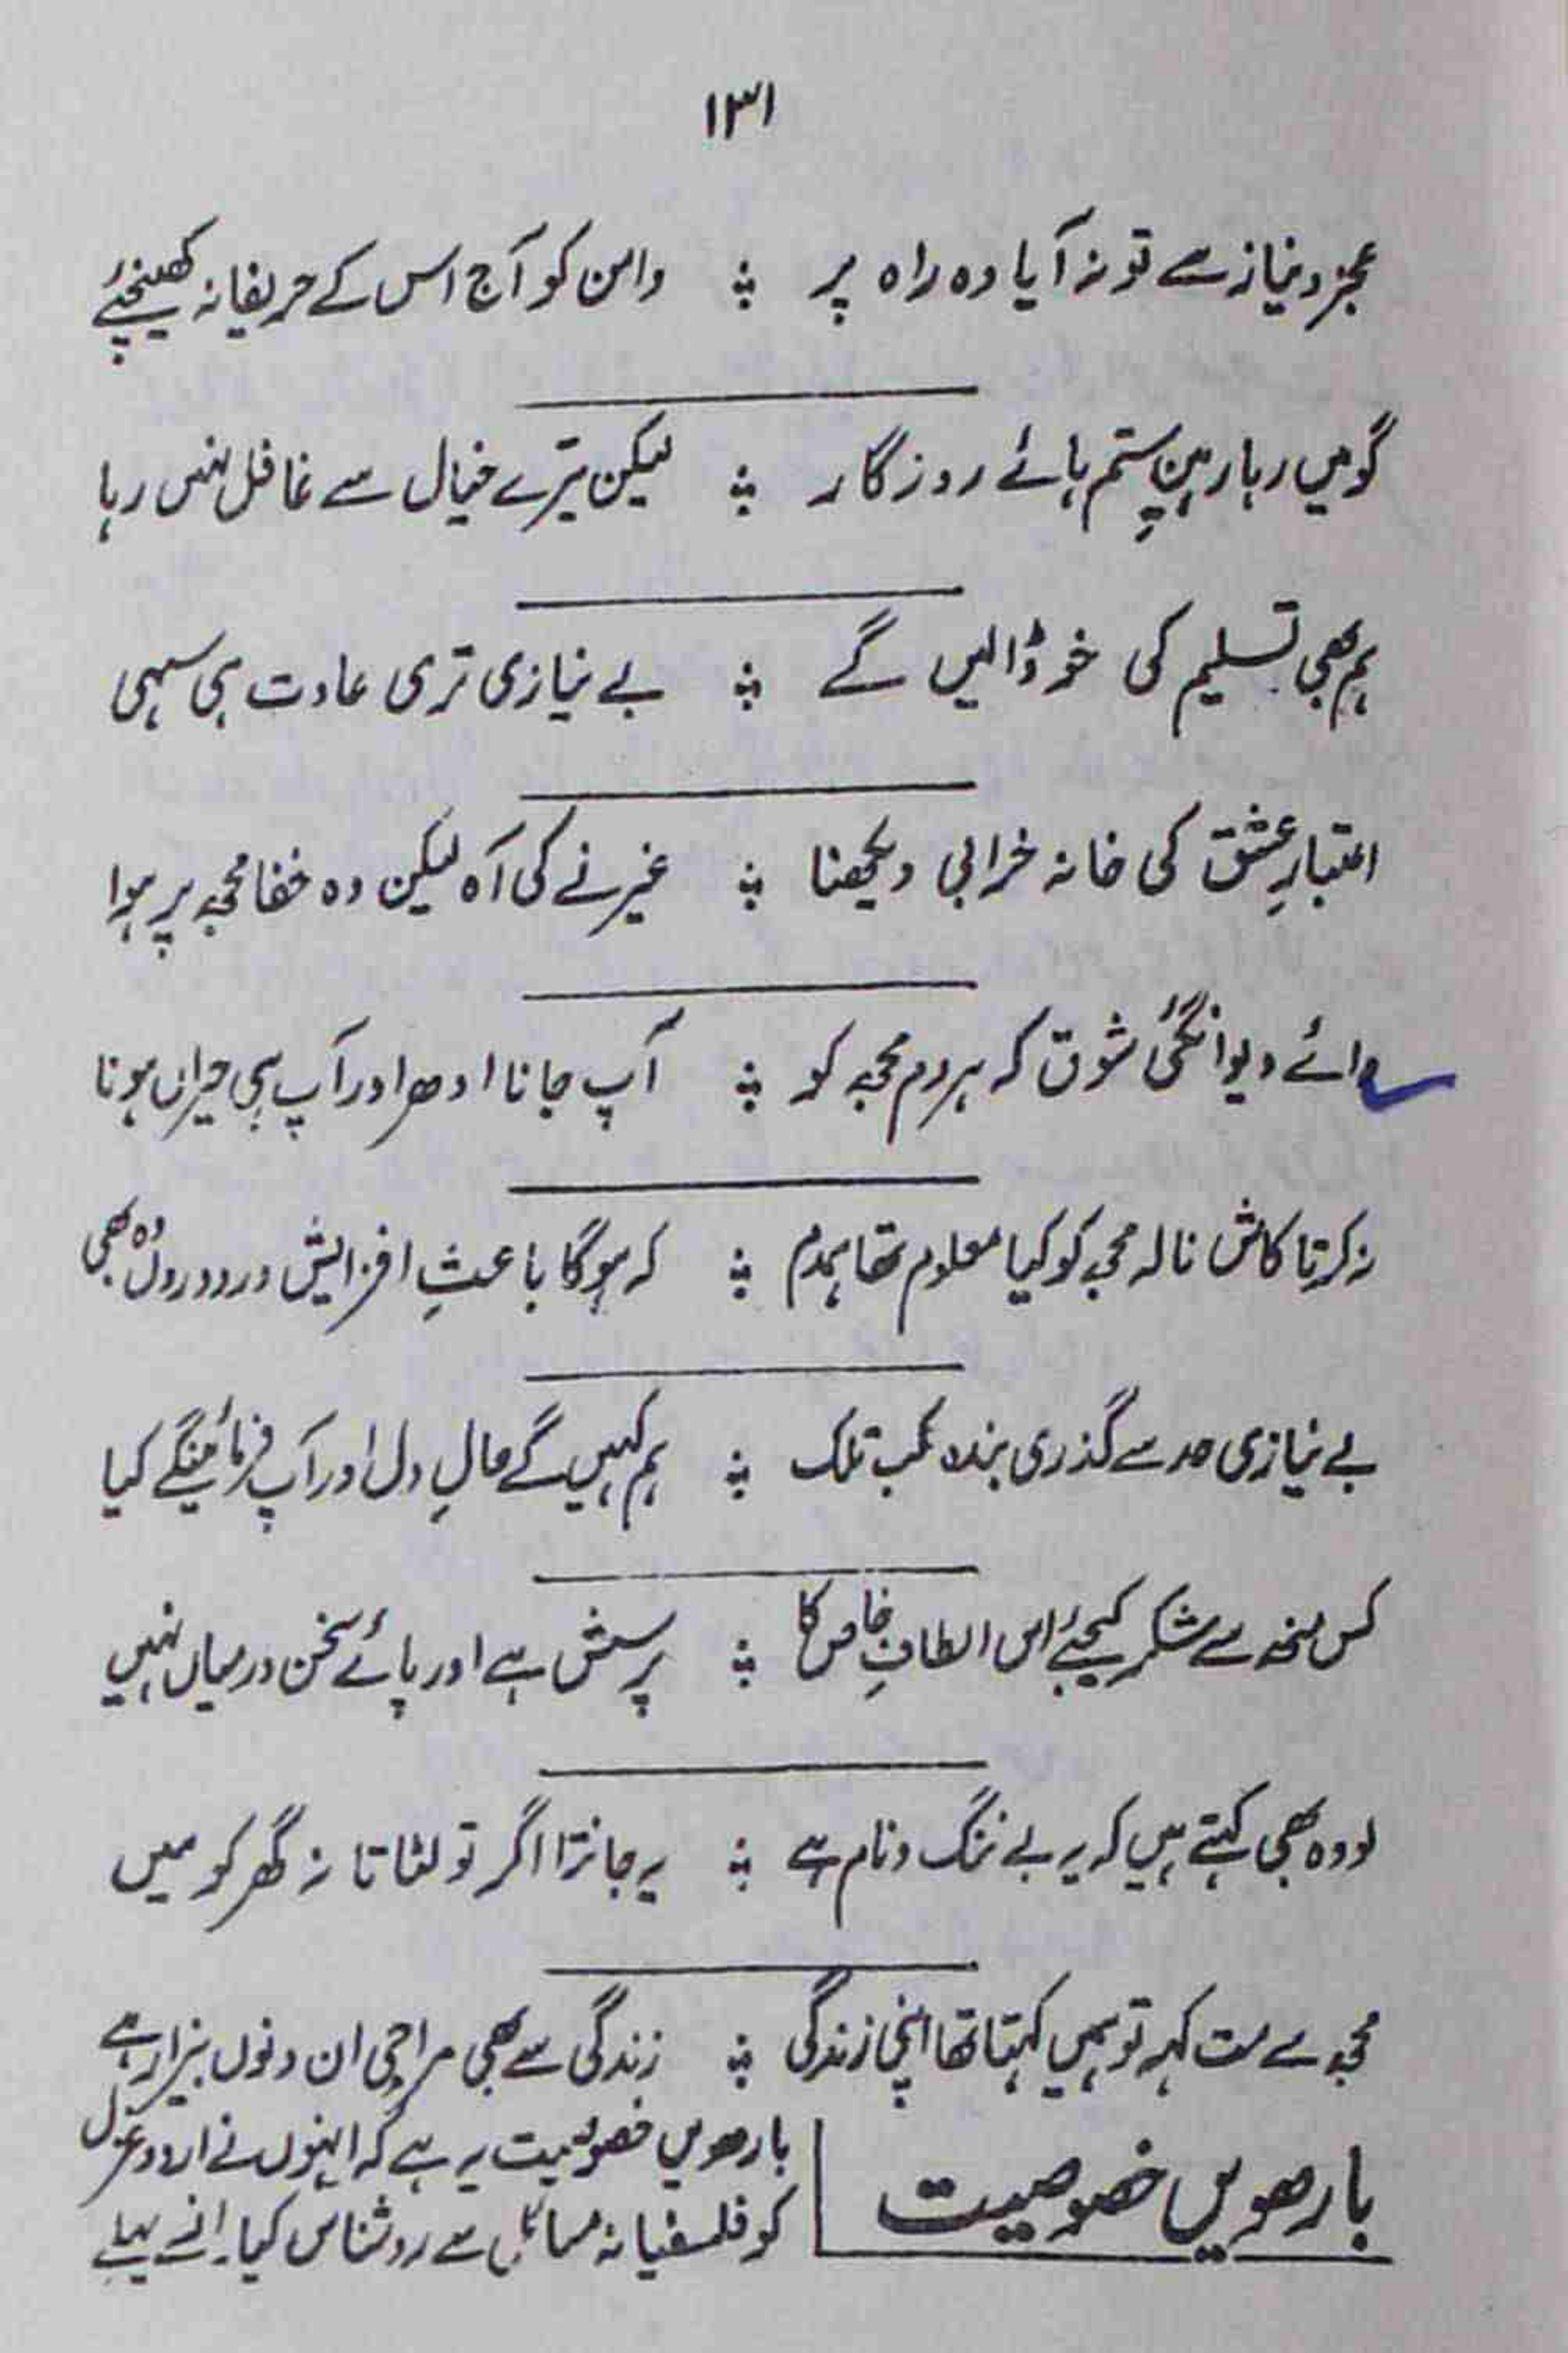 ۱۳۱
عجز و نیاز سے تو نہ آیا وہ راہ پر ؞ دامن کو آج اس کے حریفانہ کھینچئے
گو میں رہا رہینِ ستم ہائے روزگار ؞ لیکن تیرے خیال سے غافل نہیں رہا
ہم بھی تسلیم کی خو ڈالیں گے ؞ بے نیازی تری عادت ہی سہی
اعتبارِ عشق کی خانہ خرابی دیکھنا ؞ غیر نے کی آہ لیکن وہ خفا مجھ پر ہوا
وائے دیوانگئی شوق کہ ہر دم مجھ کو ؞ آپ جانا ادھر اور آپ ہی حیراں ہونا
نہ کرتا کاش نالہ مجھ کو کیا معلوم تھا ہمدم ؞ کہ ہوگا باعثِ افزایش درد دروں وہ بھی
بے نیازی حد سے گذری بندہ کب تلک ؞ ہم کہیں گے حالِ دل اور آپ فرمائینگے کیا
کس منھ سے شکر کیجئے اس الطافِ خاص کا ؞ پرسش ہے اور پائے سخن درمیاں نہیں
لو وہ بھی کہتے ہیں کہ یہ بے ننگ و نام ہے ؞ یہ جانتا اگر تو لٹاتا نہ گھر کو میں
مجھ سے مت کہہ تو ہمیں کہتا تھا اپنی زندگی ؞ زندگی سے بھی مرا جی ان دنوں بیزار ہے
بارھویں خصوصیت
بارھویں خصوصیت یہ ہے کہ انہوں نے اردو غزل
کو فلسفیانہ مسائل سے روشناس کیا۔ انسے پہلے